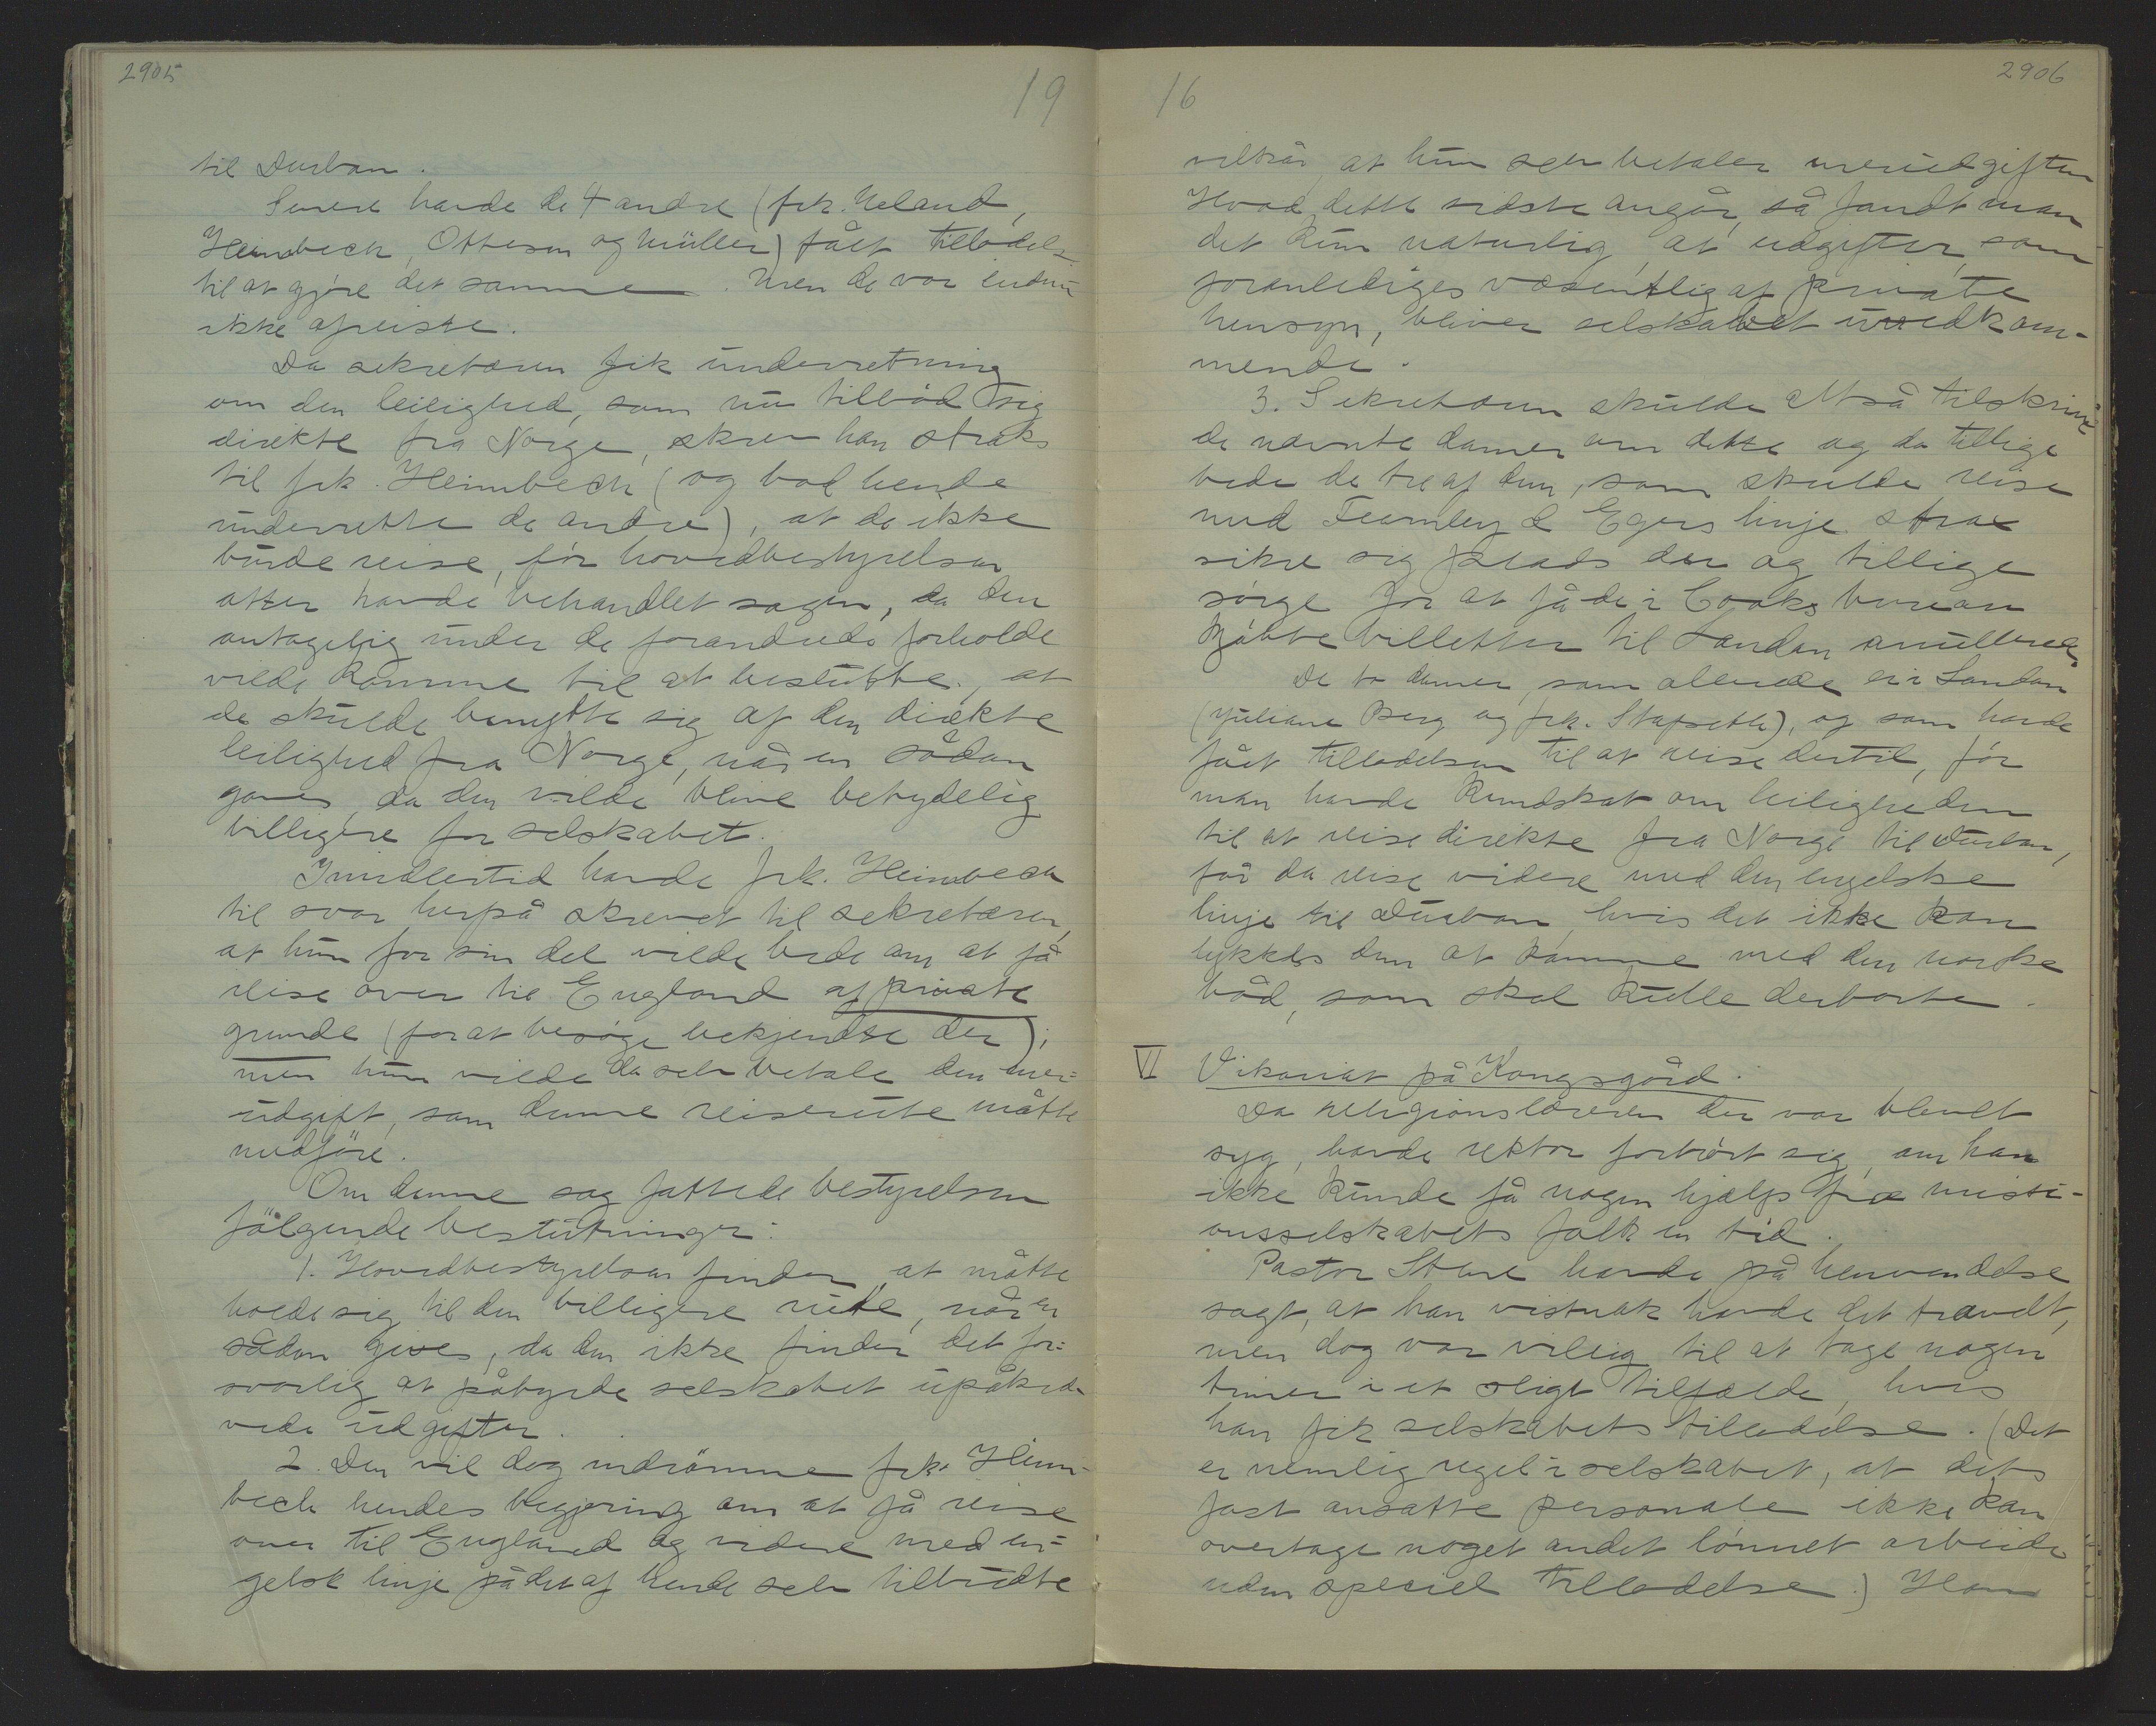 2905
19
til Durban.
Senere havde de 4 andre (frk. Ueland,
Heimbeck, Ottesen og Müller) fået tilladelse
til at gjøre det samme. Men de var endnu
ikke afreiste.
Da sekretæren fik underretning
om den leilighed, som nu tilbød sig
direkte fra Norge, skrev han straks
til frk. Heimbeck (og bad hende
underrette de andre), at de ikke
burde reise, før hovedbestyrelsen
atter havde behandlet sagen, da den
antagelig under de forandrede forholde
vilde komme til at beslutte, at
de skulde benytte sig af den direkte
leilighed fra Norge, når en sådan
gaves, da den vilde blive betydelig
billigere for selskabet.
Imidlertid havde frk. Heimbeck
til svar herpå skrevet til sekretæren,
at hun for sin del vilde bede om at få
reise over til England af private
grunde (for at besøge bekjendte der);
men hun vilde da selv betale den mer=
udgift, som denne reiserute måtte
medføre.
Om denne sag fattede bestyrelsen
følgende beslutninger:
1. Hovedbestyrelsen finder at måtte
holde sig til den billigere rute, når en
sådan gives, da den ikke finder det for=
svarlig at påbyrde selskabet upåkræ-
vede udgifter.
2. Den vil dog indrømme frk. Heim-
beck hendes begjæring om at få reise
over til England og videre med en=
gelsk linje på det af hende selv tilbudte
16
2906
vilkår, at hun selv betaler merudgiften
Hvad dette sidste angår, så fandt man
det kun naturlig, at udgifter, som
foranlediges væsentlig af private
hensyn, bliver selskabet uvedkom-
mende.
3. Sekretæren skulde altså tilskrive
de nævnte damer om dette og da tillige
bede de tre af dem, som skulde reise
med Fearnley & Egers linje strax
sikre sig plads der og tillige
sørge for at få de i Cooks bureau
kjøbte billetter til London annullerede.
De to damer, som allerede er i London
(Juliane Berg og frk. Stapseth), og som havde
fået tilladelsen til at reise dertil, før
man havde kundskab om leiligheden
til at reise direkte fra Norge til Durban,
får da reise videre med den engelske
linje til Durban, hvis det ikke kan
lykkes dem at komme med den norske
båd, som skal kulle derborte.
VI Vikariat på Kongsgård.
Da religionslæreren der var blevet
syg, havde rektor forhørt sig, om han
ikke kunde få nogen hjælp fra missi-
onsselskabets folk en tid.
Pastor Stene havde på henvendelse
sagt, at han vistnok havde det travelt,
men dog var villig til at tage nogen
timer i et sligt tilfælde, hvis
han fik selskabets tilladelse. (Det
er nemlig regel i selskabet, at dets
fast ansatte personale ikke kan
overtage noget andet lønnet arbeide
uden speciel tilladelse.) Han